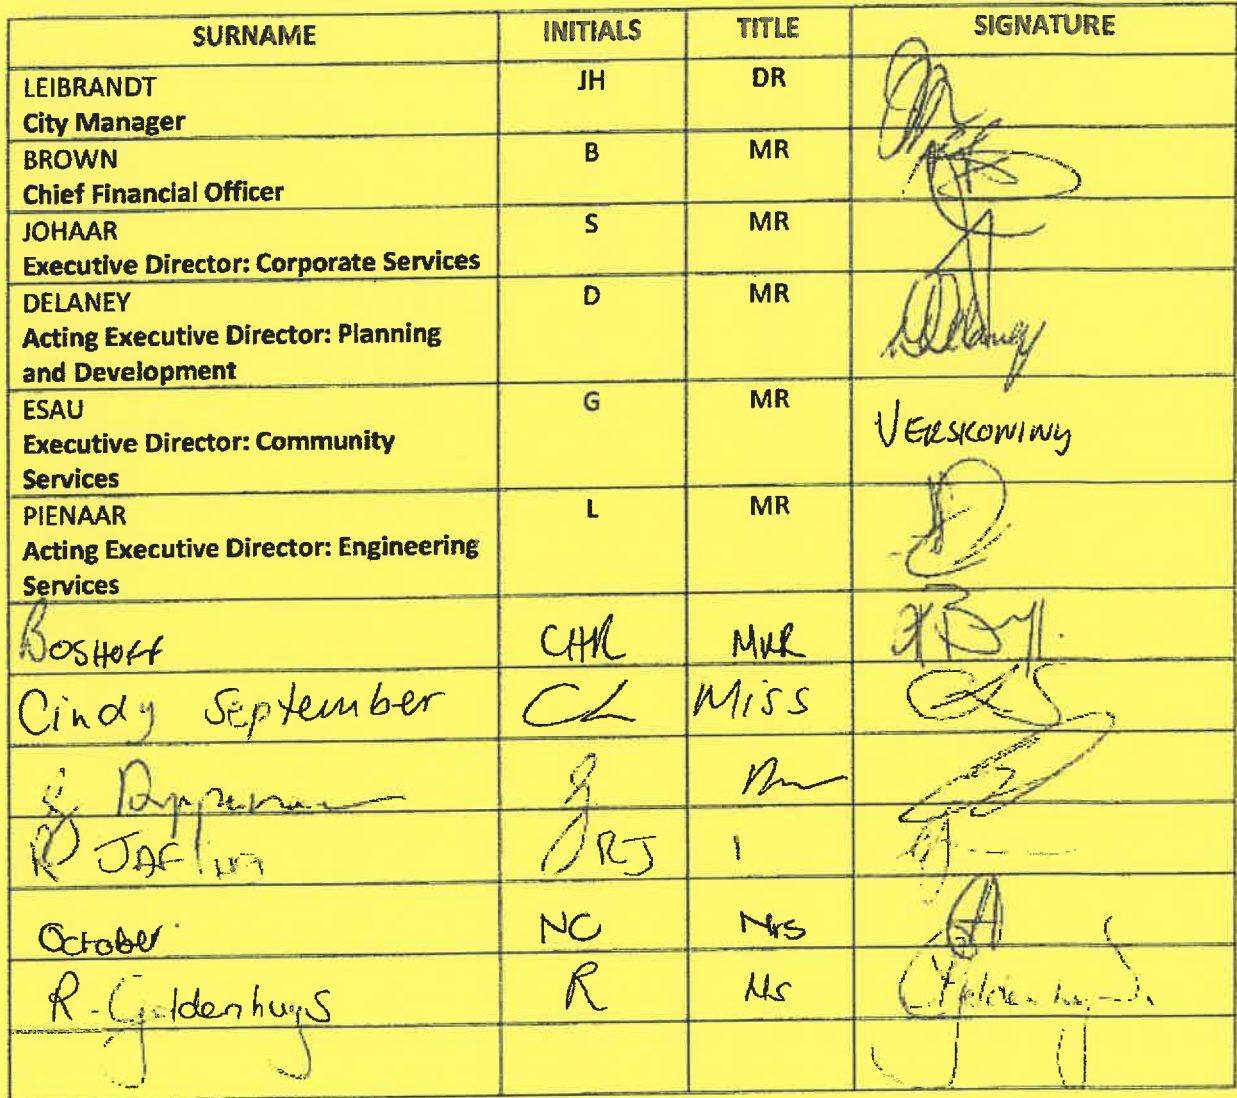 SURNAME INITIALS TITLE SIGNATURE
LEIBRANDT JH DR
City Manager
BROWN B MR
Chief Financial Officer
JOHAAR S MR
Executive Director: Corporate Services
DELANEY D MR
Acting Executive Director: Planning
and Development
ESAU G MR
Executive Director: Community VERSKONING
Services
PIENAAR L MR
Acting Executive Director: Engineering
Services
BOSHOFF CHR
Cindy September CL Miss
R JAFTHA RJ
October NC Mrs
R. Goldenhuys R Ms